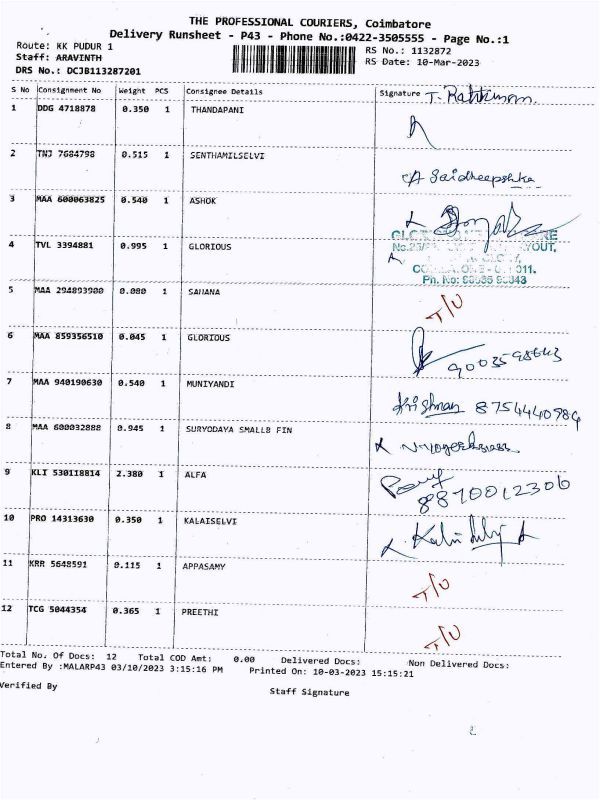 THE PROFESSIONAL COURIERS, Coimbatore
Delivery Runsheet - P43 - Phone No.:0422-3505555 - Page No.:1
Route: KK PUDUR 1
RS No.: 1132872
Staff: ARAVINTH
RS Date: 10-Mar-2023
DRS No.: DCJB113287201
S No Consignment No Weight PCS Consignee Details Signature
1 DDG 4718878 0.350 1 THANDAPANI
2 TNJ 7684798 0.515 1 SENTHAMILSELVI
3 MAA 600063825 0.540 1 ASHOK
4 TVL 3394881 0.995 1 GLORIOUS
5 MAA 294893900 0.080 1 SAHANA T/U
6 MAA 859356510 0.045 1 GLORIOUS
7 MAA 940190630 0.540 1 MUNIYANDI Krishnan 8754440984
8 MAA 600032888 0.945 1 SURYODAYA SMALLB FIN
9 KLI 530118814 2.380 1 ALFA 8870012306
10 PRO 14313630 0.350 1 KALAISELVI
11 KRR 5648591 0.115 1 APPASAMY T/U
12 TCG 5044354 0.365 1 PREETHI T/U
Total No. Of Docs: 12 Total COD Amt: 0.00 Delivered Docs: Non Delivered Docs:
Entered By :MALARP43 03/10/2023 3:15:16 PM Printed On: 10-03-2023 15:15:21
Verified By
Staff Signature